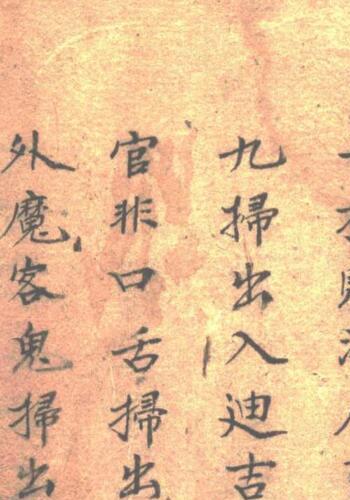 九掃出入迪吉
官非口舌掃出
外魔客鬼掃出